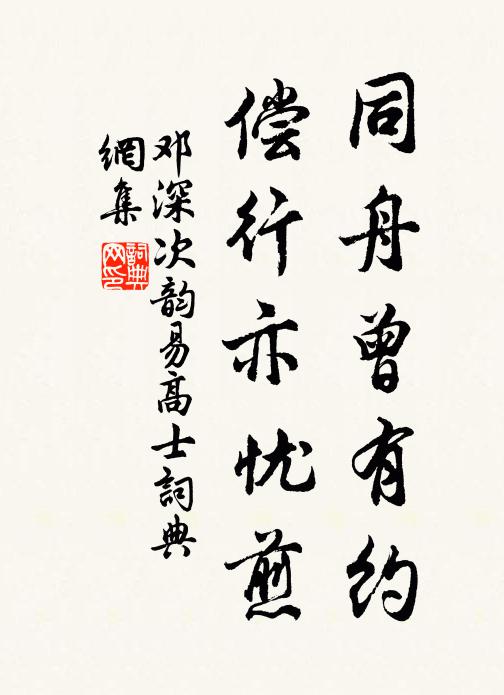 同舟曾有约
偿行亦忧煎
邓深次韵易高士詞典
網集
詞典
网印